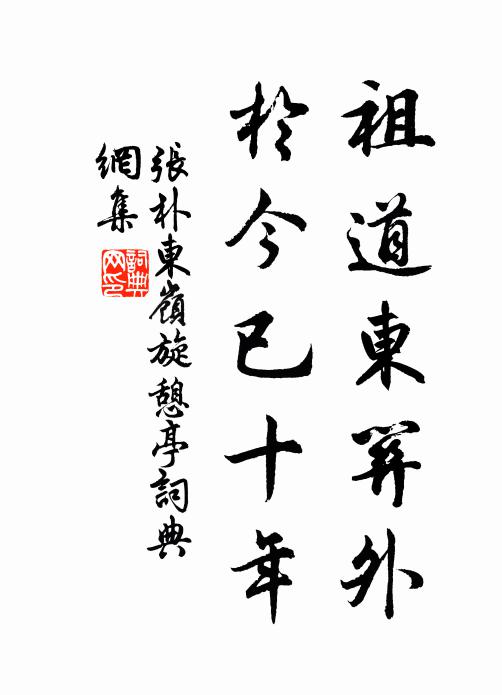 祖道東門外
於今已十年
張朴東嶺旋憩亭詞典
網集
詞典網印